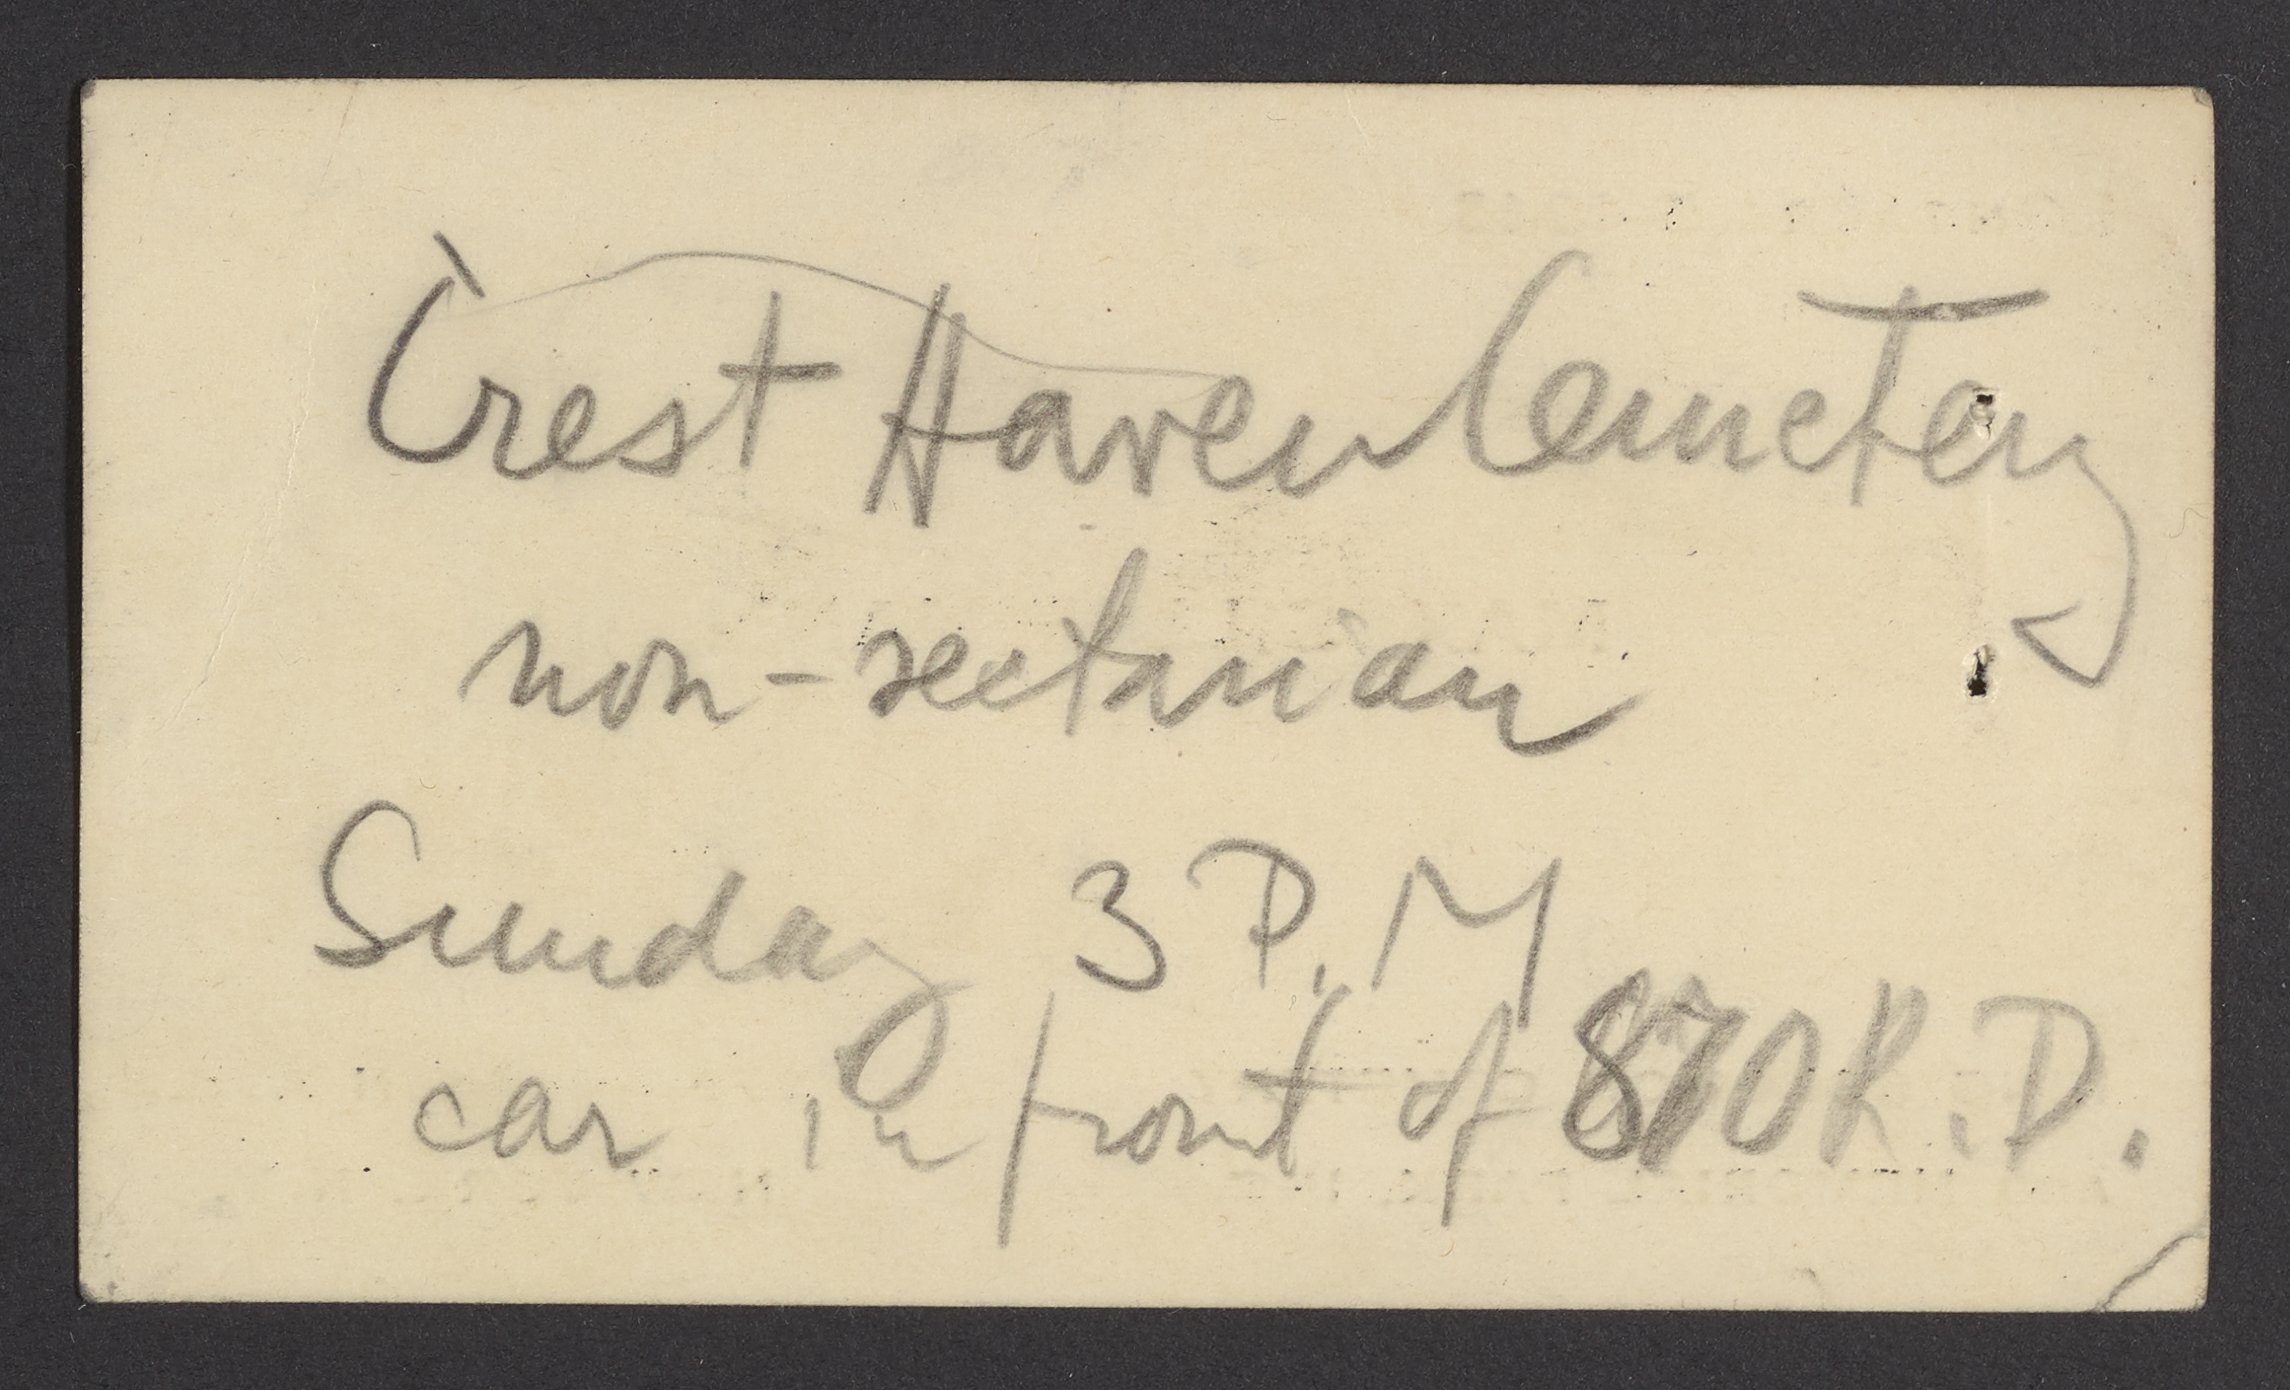 Crest Haven Cemetery
non-sectarian
Sunday 3 P.M
car in front of 870 R.D.